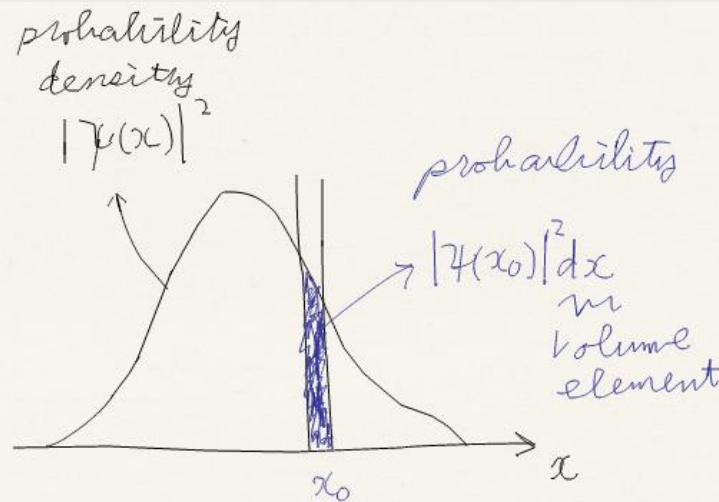 probability
density
|ψ(x)|²
probability
|ψ(x₀)|²dx
volume
element
x₀
x